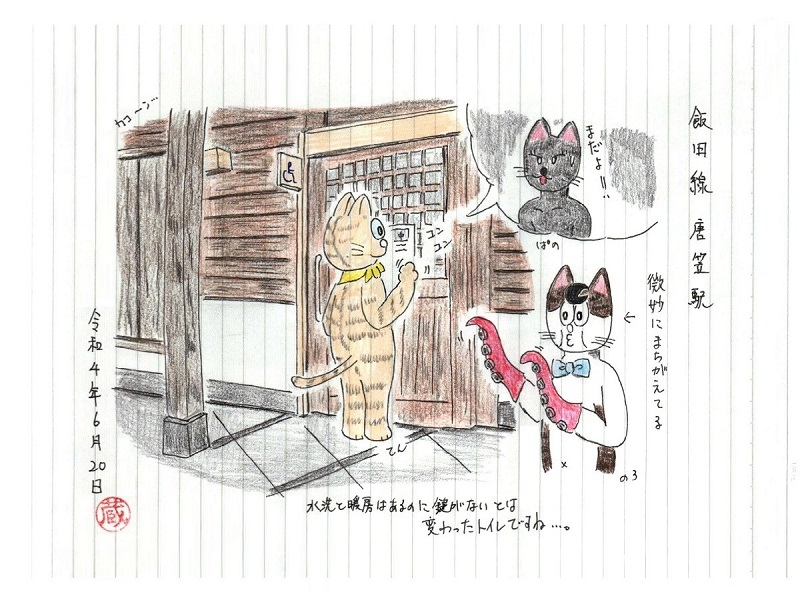 飯田線 唐笠駅
まだよ!!
ぱの
カコーン…
コン
コン
中
微妙にまちがえてる
←
のろ
てん
×
水洗と暖房はあるのに鍵がないとは
変わったトイレですね…。
令和4年6月20日
蔵